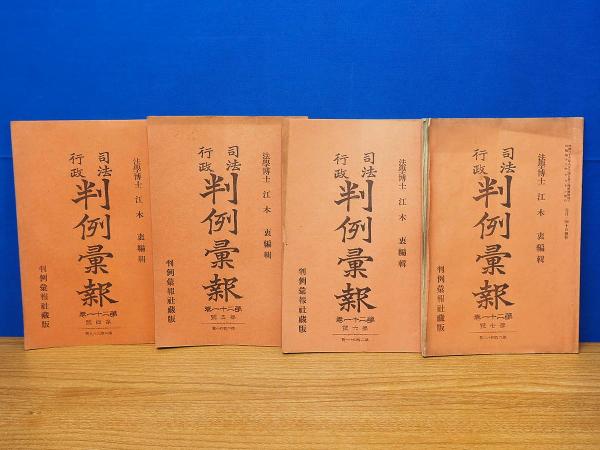 法學博士 江木 衷編輯
司法
行政
判例彙報
第二十一卷
第四號
判例彙報社藏版
法學博士 江木 衷編輯
司法
行政
判例彙報
第二十一卷
第五號
判例彙報社藏版
法學博士 江木 衷編輯
司法
行政
判例彙報
第二十一卷
第六號
判例彙報社藏版
法學博士 江木 衷編輯
司法
行政
判例彙報
第二十一卷
第七號
判例彙報社藏版